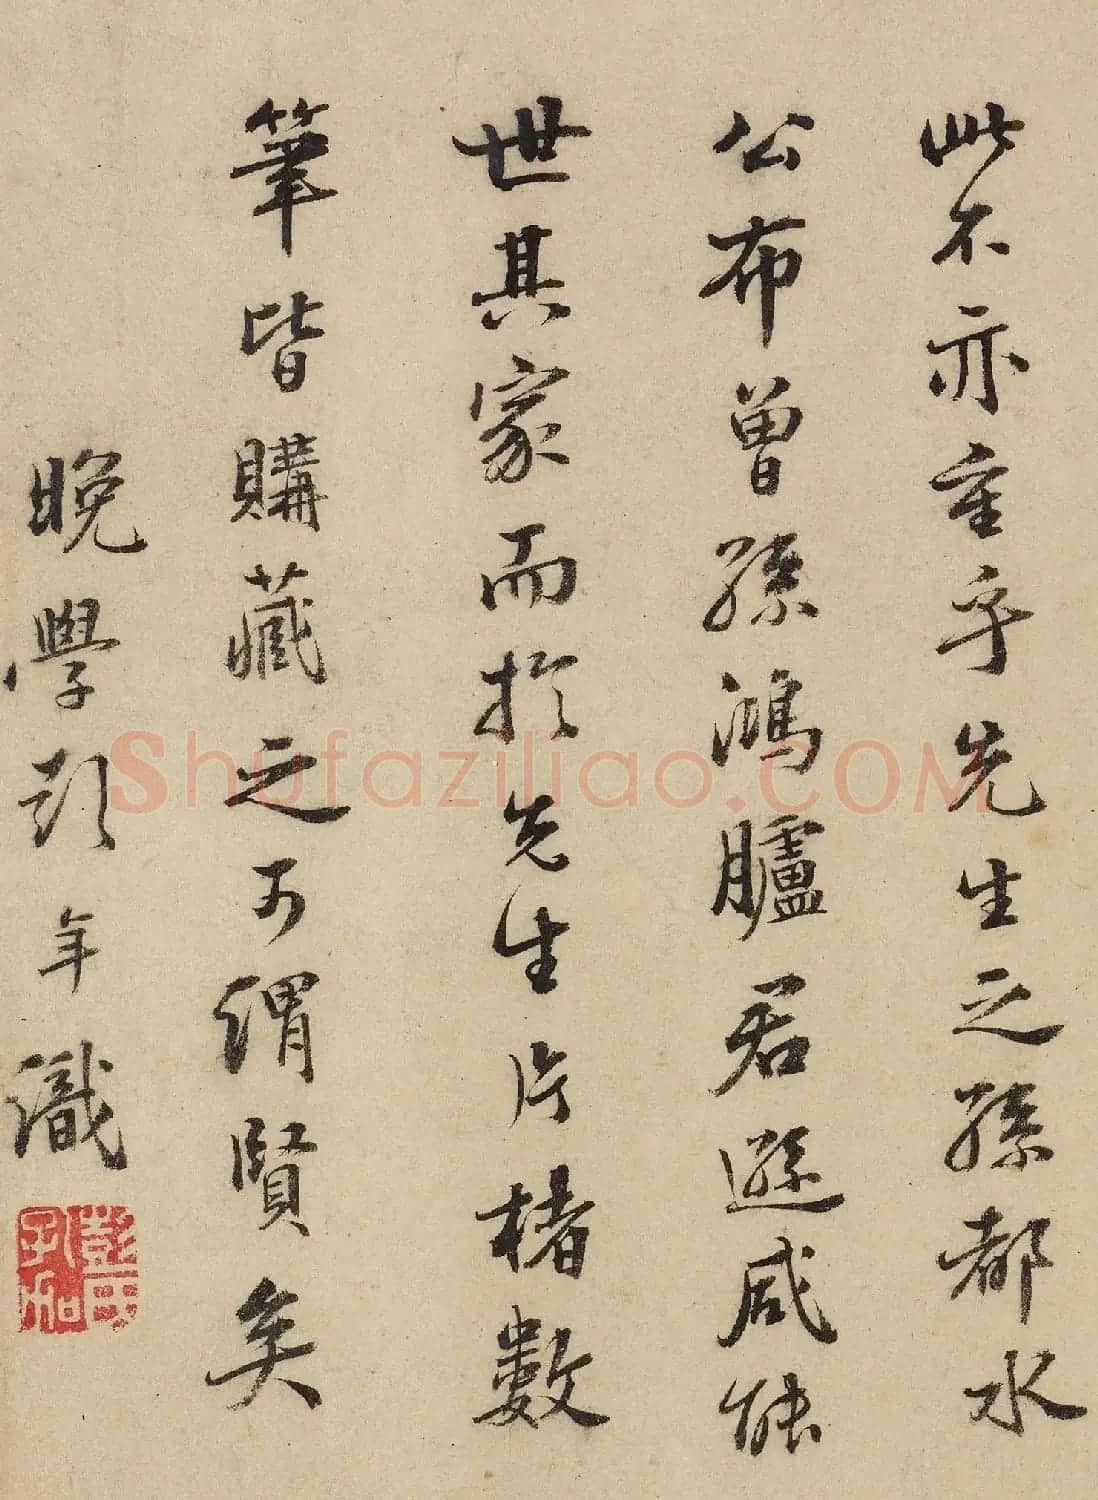 此不亦重乎先生之孫都水
公布曾孫鴻臚君遜咸能
世其家而於先生片楮數
筆皆購藏之可謂賢矣
晚學彭年識
Shufaziliao.COM